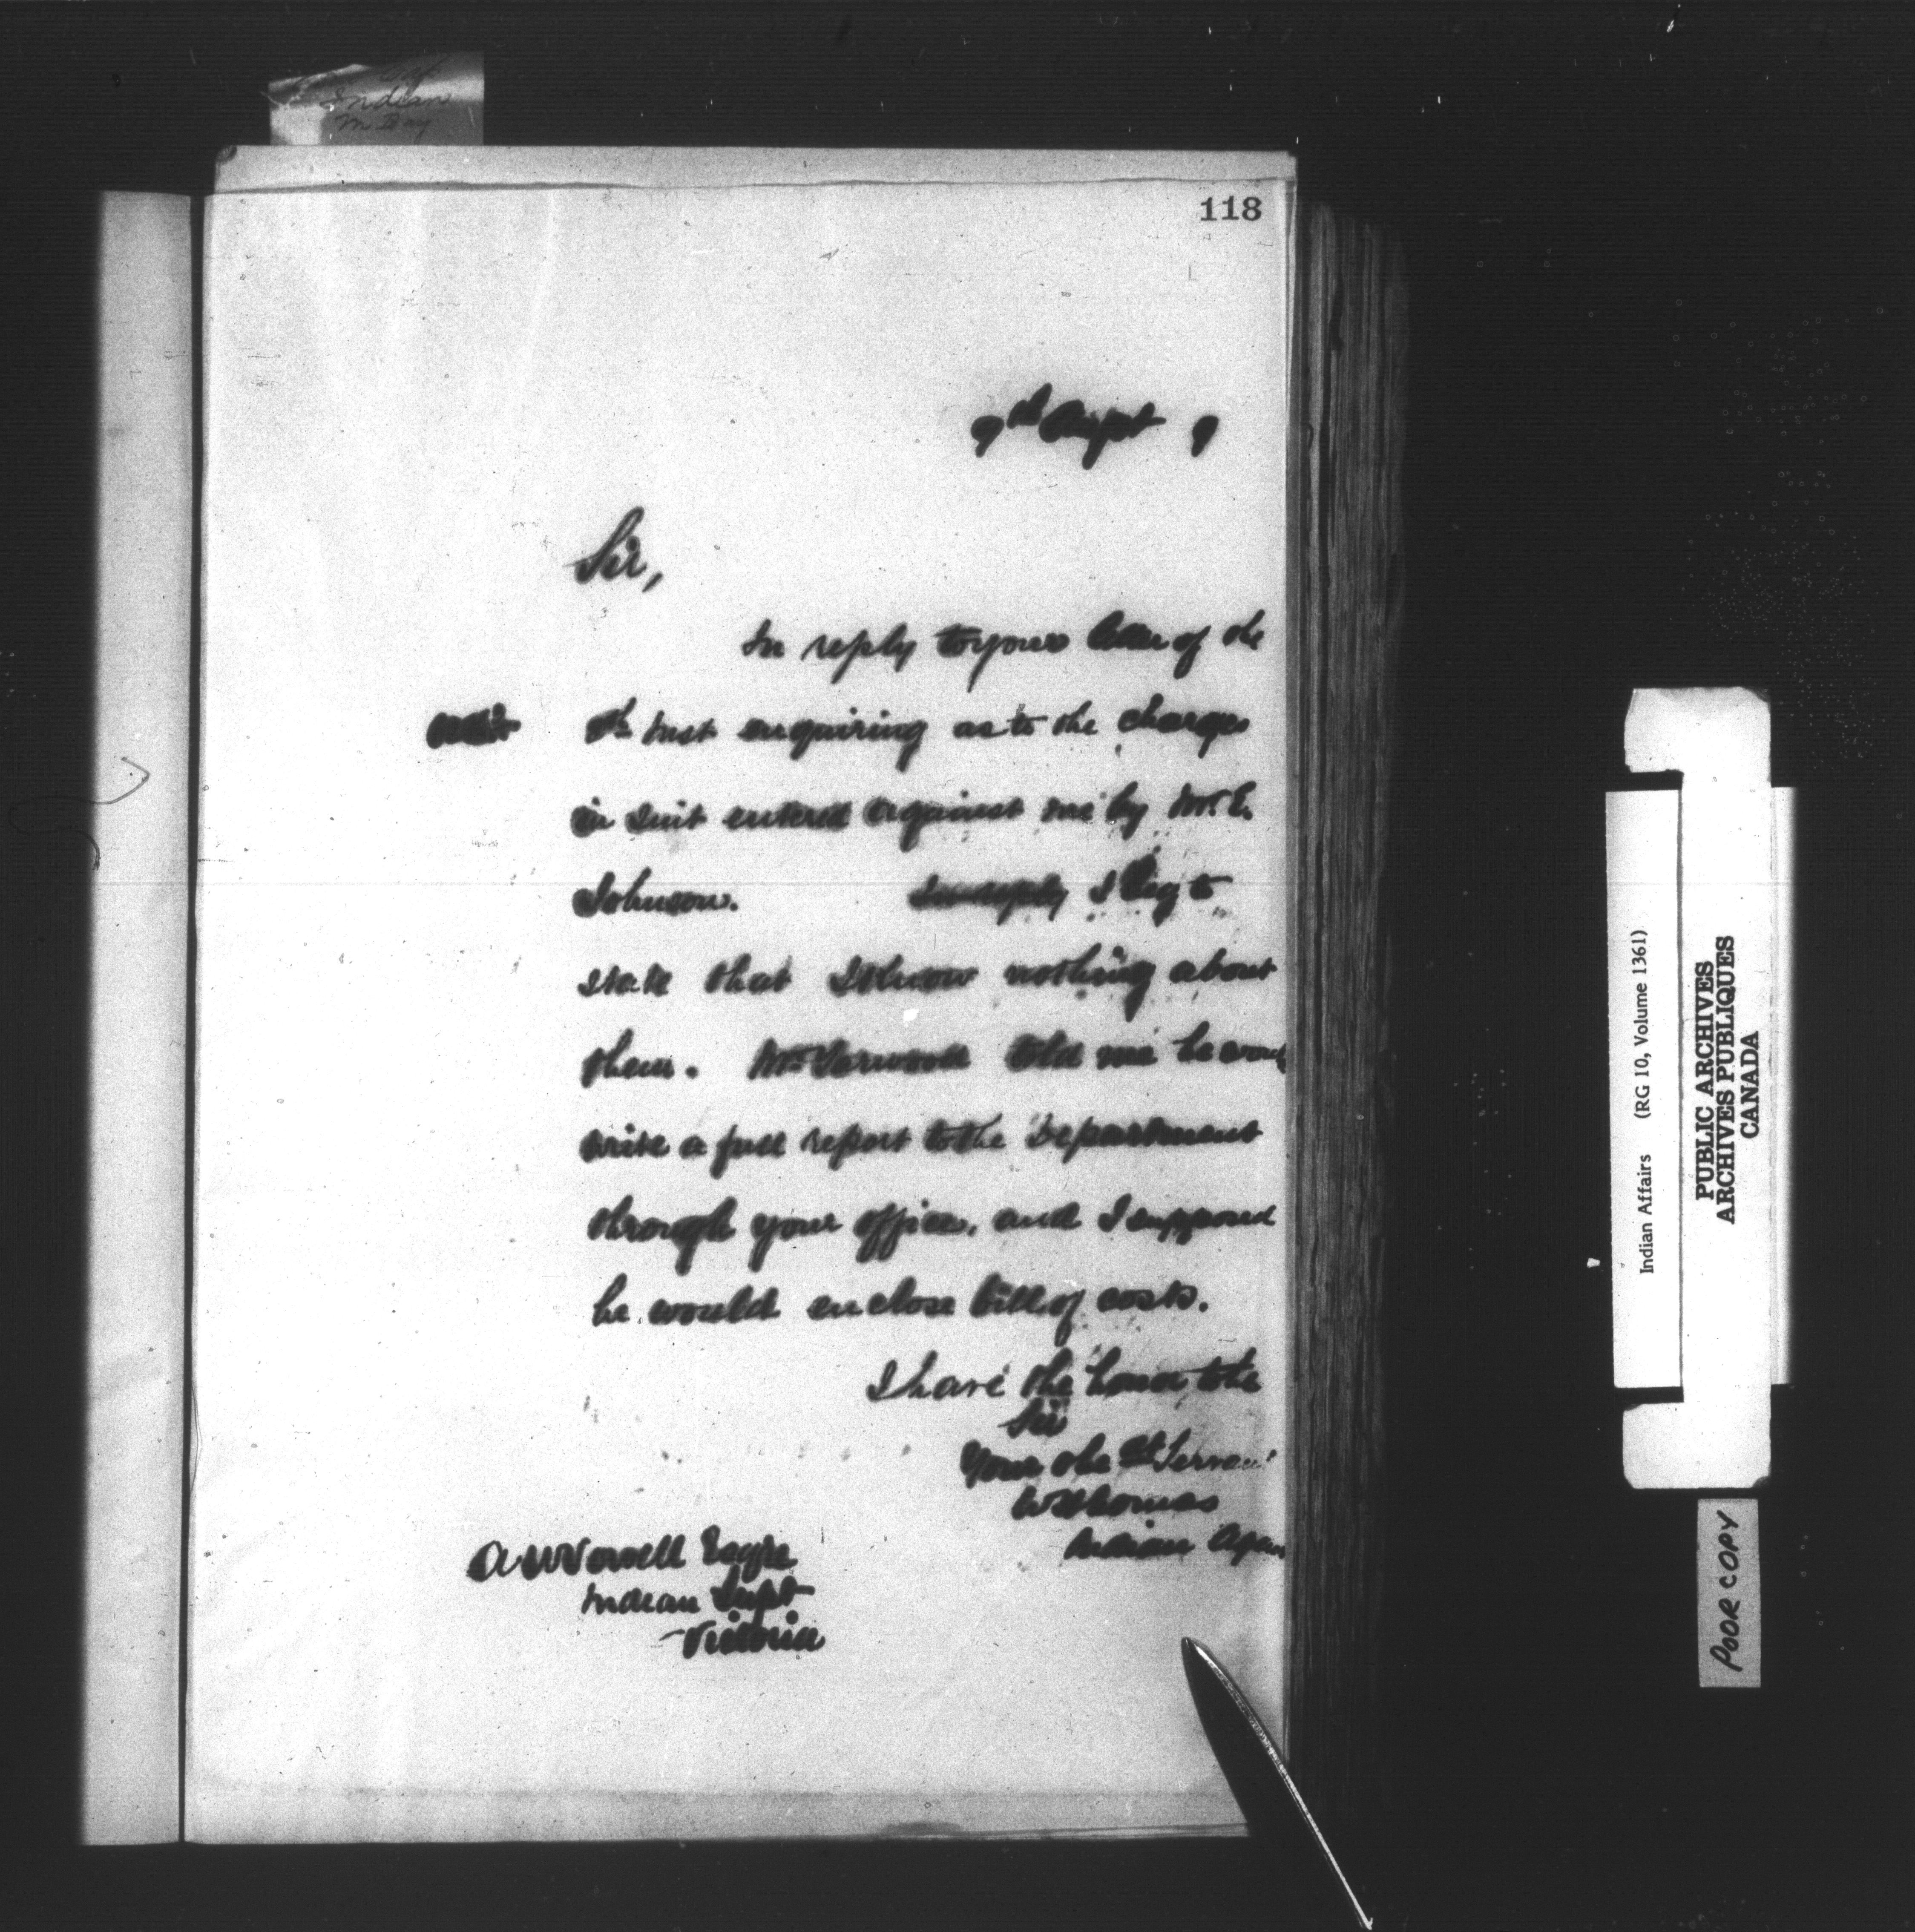 Indian
118
9th August 9
Sir,
In reply to your letter of the
th Inst enquiring as to the charges
in suit entered against me by Mr. E.
Johnson. In reply I beg to
state that I know nothing about
them. Mr told me he would
write a full report to the Department
through your office, and I supposed
he would enclose bill of costs.
I have the honor to be
Sir
Your obedt Servant
W H Lomas
Indian Agent
A W Vowell Esqre
Indian Supt
Victoria
Indian Affairs (RG 10, Volume 1361)
PUBLIC ARCHIVES
ARCHIVES PUBLIQUES
CANADA
POOR COPY